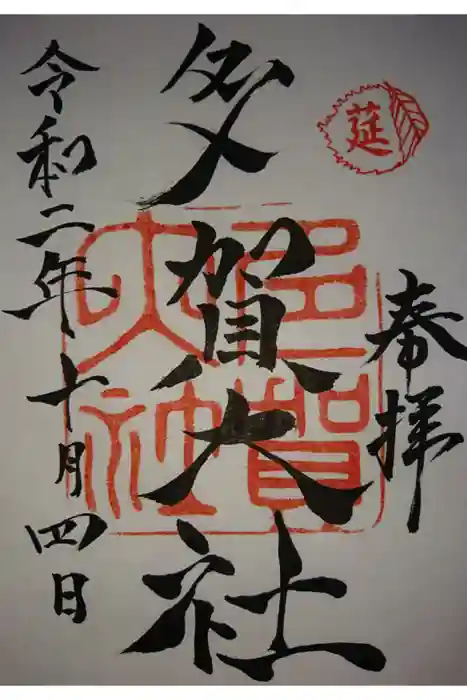 莚
奉拝
多賀大社
多賀大社
令和二年十月四日